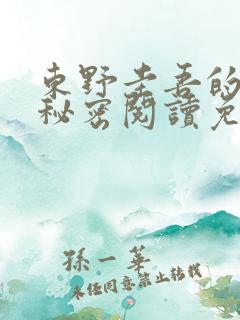 東野圭吾的
秘密閱讀免
孫一華
未經同意禁止轉載